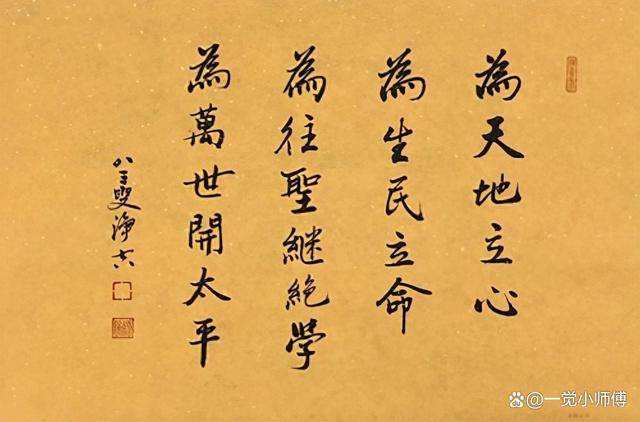 為天地立心
為生民立命
為往聖継絶學
為萬世開太平
叟淨空
@一觉小师傅